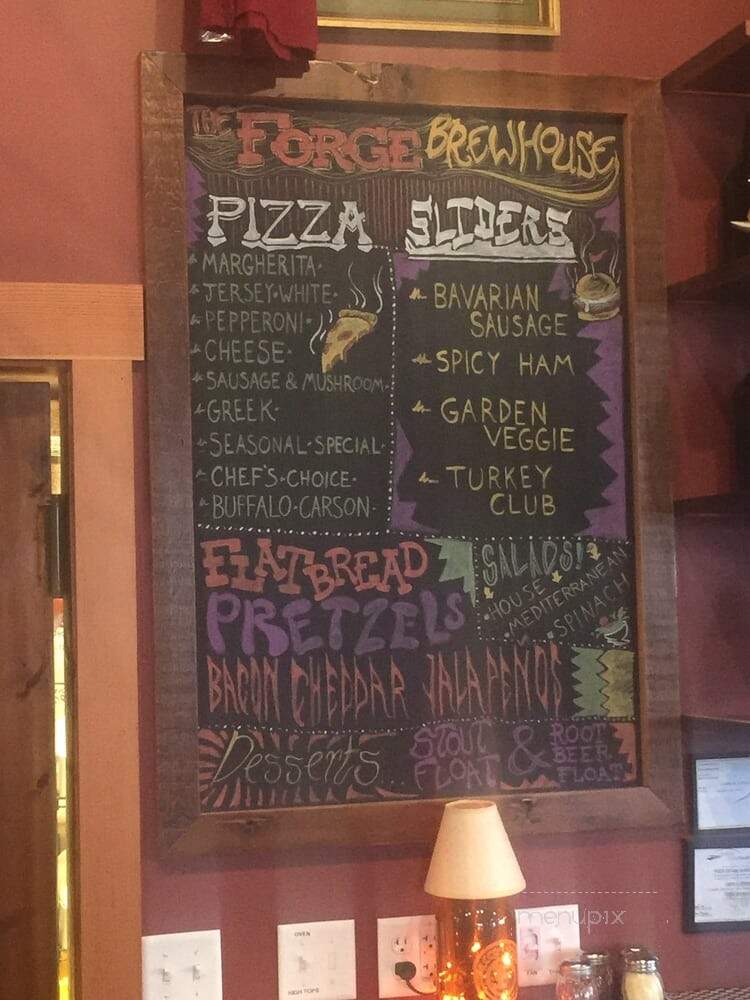 THE FORGE BREWHOUSE
PIZZA
MARGHERITA
JERSEY·WHITE
PEPPERONI
CHEESE
SAUSAGE & MUSHROOM
GREEK
SEASONAL·SPECIAL
CHEF'S·CHOICE
BUFFALO·CARSON
SLIDERS
BAVARIAN
SAUSAGE
SPICY HAM
GARDEN
VEGGIE
TURKEY
CLUB
FLATBREAD
PRETZELS
SALADS!
·HOUSE
·MEDITERRANEAN
·SPINACH
BACON CHEDDAR JALAPENOS
Desserts
STOUT
FLOAT
&
ROOT
BEER
FLOAT
OVEN
HIGH TOPS
FAN
menupix